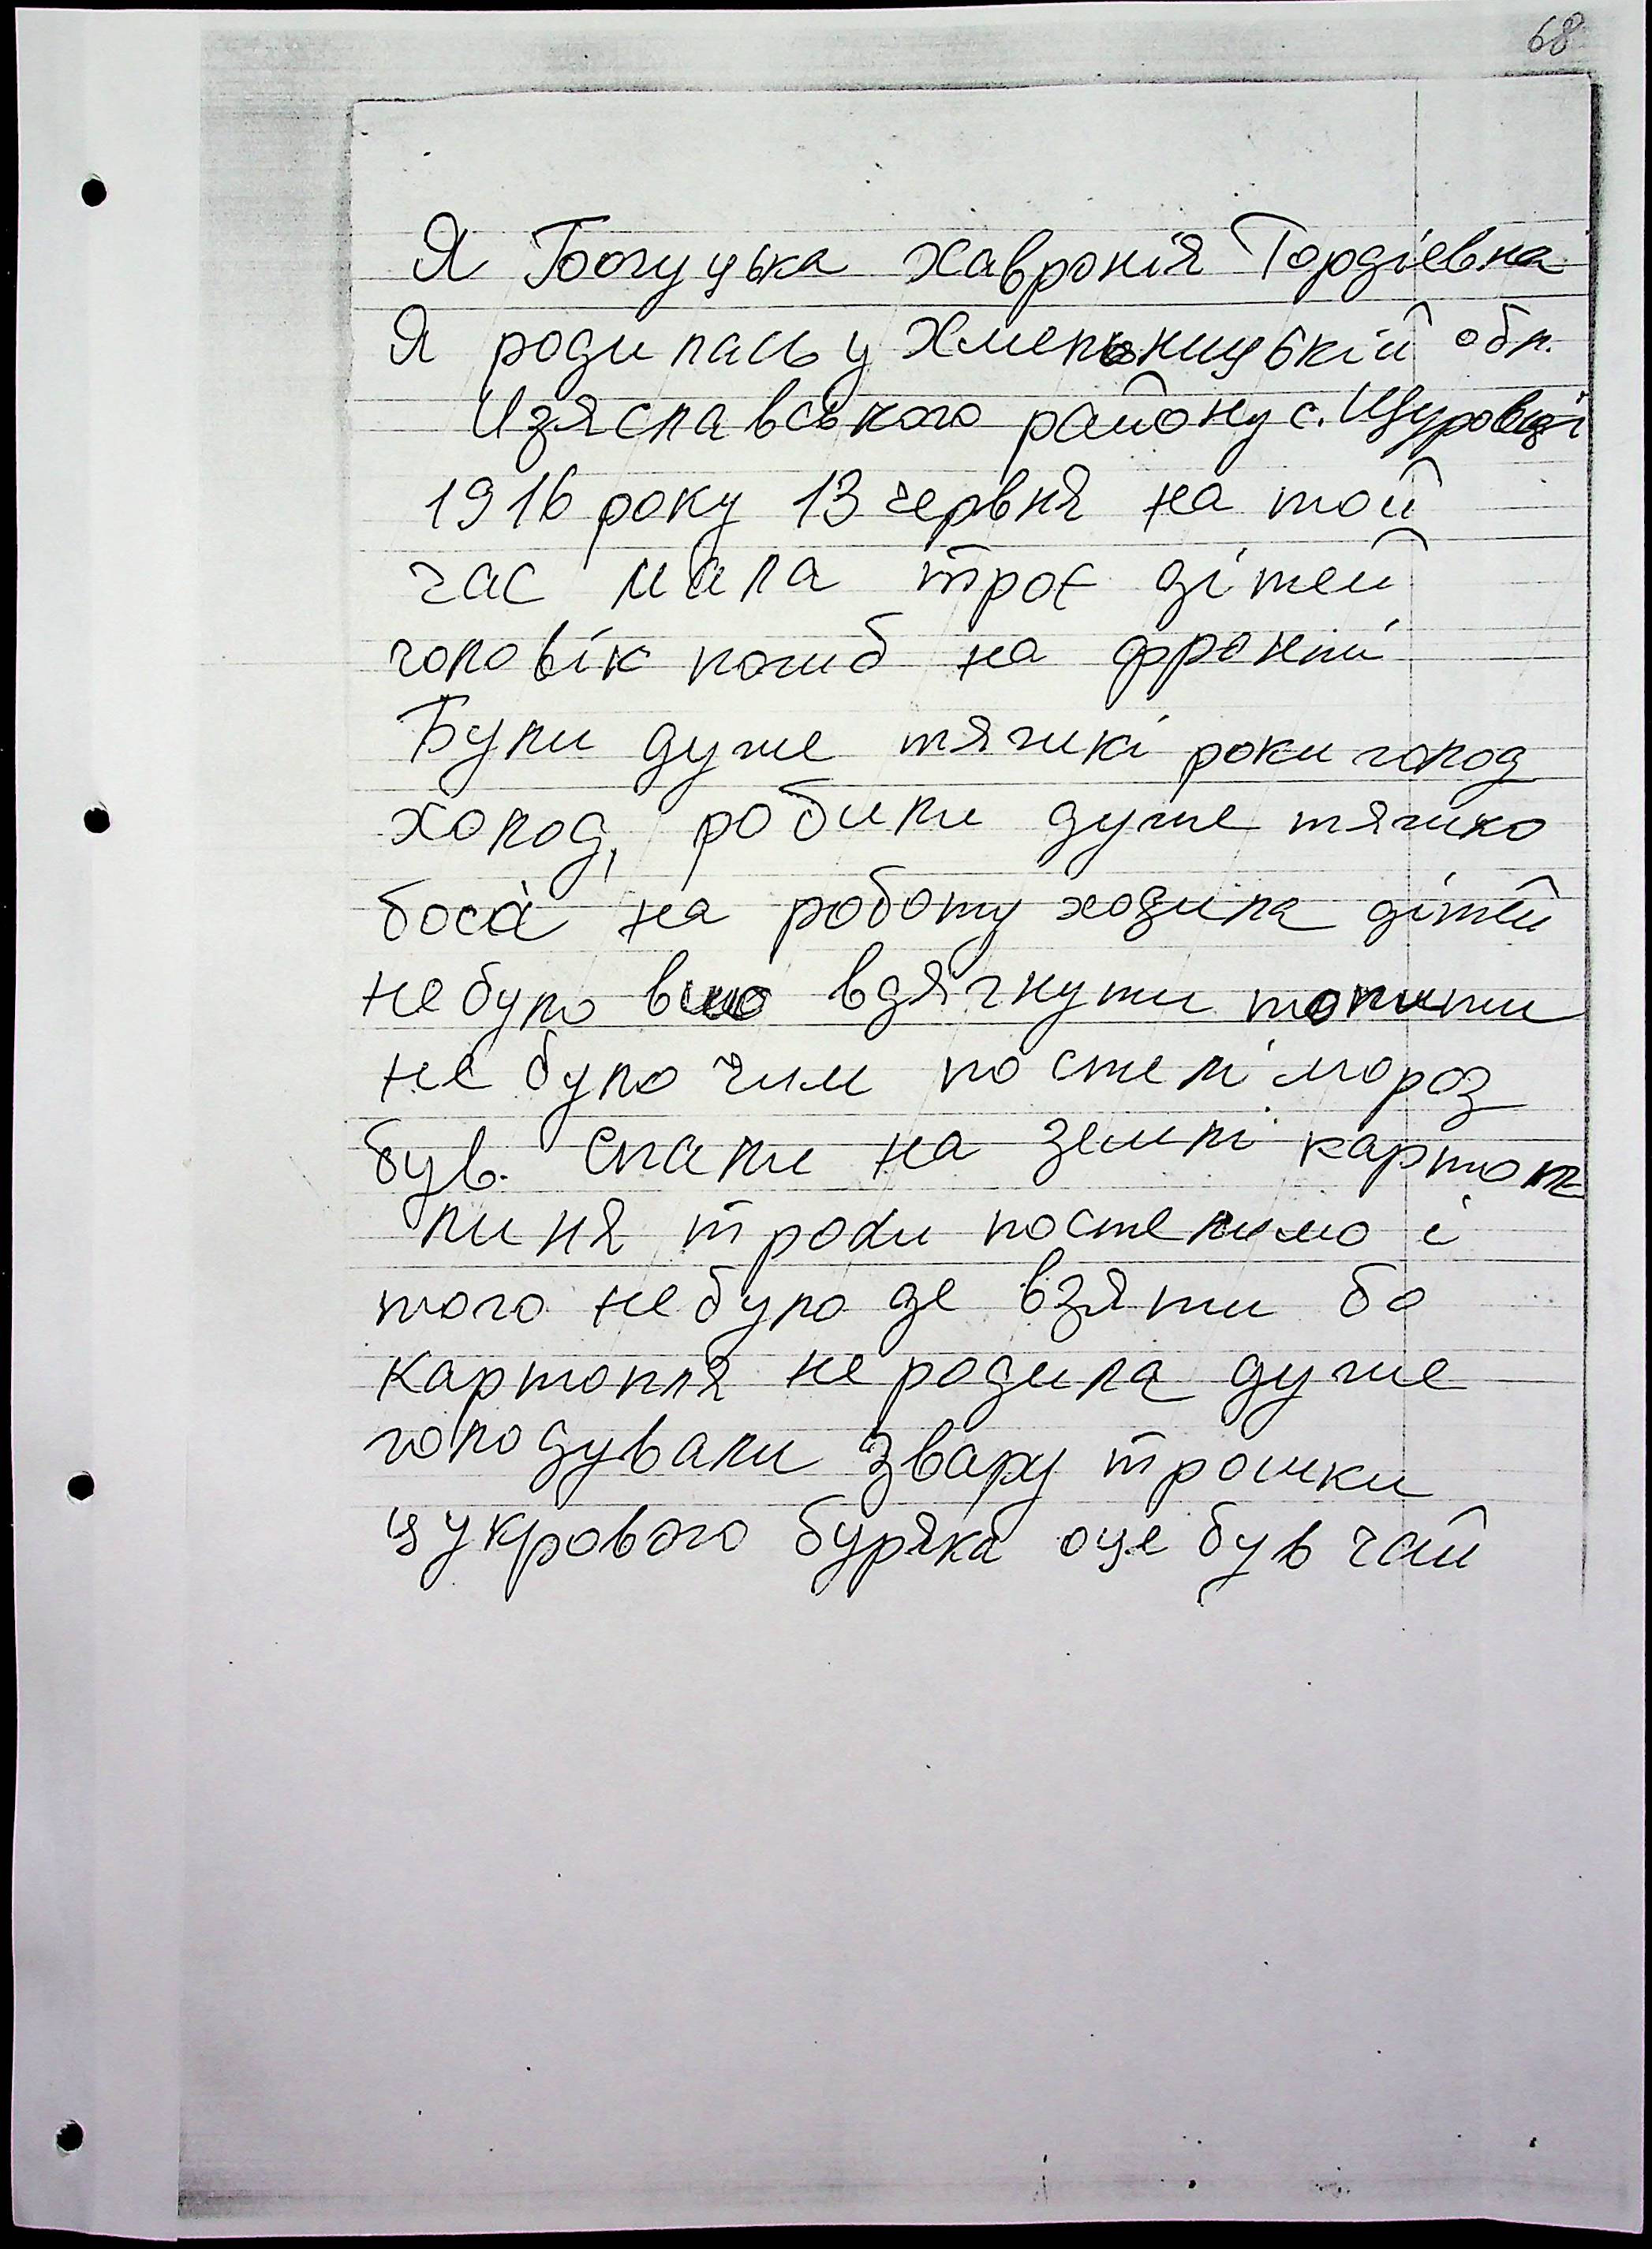 68
Я Богуцька Хавронія Гордіевна
Я родилась у Хмельницькій обл.
Изяславського району с. Щуровці
1916 року 13 червня на той
час мала троє дітей
чоловік погиб на фронті
Були дуже тяжкі роки голод
холод, робили дуже тяжко
боса на роботу ходила дітей
не було в що вдягнути топити
не було чим по стелі мороз
був. Спали на землі картоп
линя трохи постелимо і
того не було де взяти бо
картопля не родила дуже
голодували звару трошки
цукрового буряка оце був чай